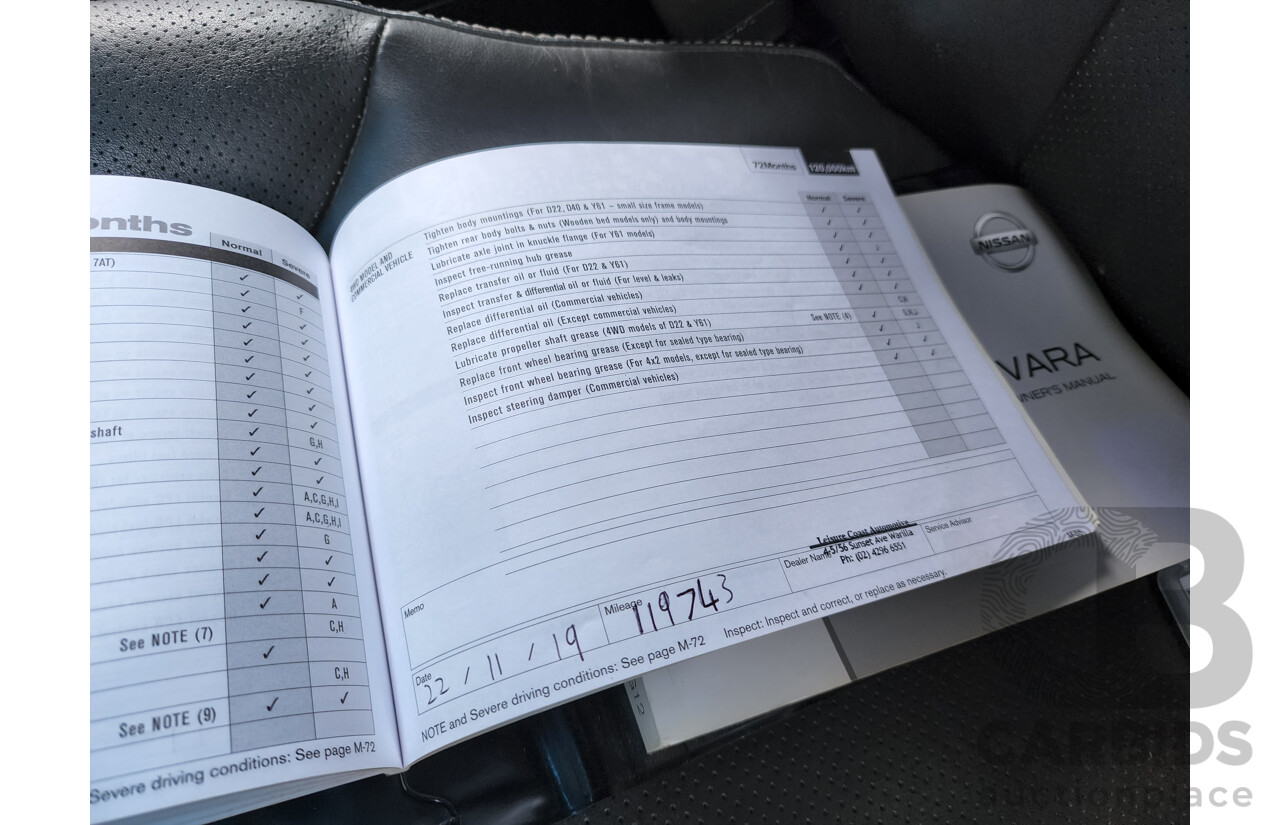 onths
Normal
Severe
7AT)
F
shaft
G,H
A,C,G,H,I
A,C,G,H,I
G
A
See NOTE (7)
C,H
C,H
See NOTE (9)
Severe driving conditions: See page M-72
72Months
120,000km
Normal
Severe
4WD MODEL AND
COMMERCIAL VEHICLE
Tighten body mountings (For D22, D40 & Y61 – small size frame models)
Tighten rear body bolts & nuts (Wooden bed models only) and body mountings
Lubricate axle joint in knuckle flange (For Y61 models)
Inspect free-running hub grease
Replace transfer oil or fluid (For D22 & Y61)
Inspect transfer & differential oil or fluid (For level & leaks)
Replace differential oil (Commercial vehicles)
Replace differential oil (Except commercial vehicles)
See NOTE (4)
Lubricate propeller shaft grease (4WD models of D22 & Y61)
Replace front wheel bearing grease (Except for sealed type bearing)
Inspect front wheel bearing grease (For 4x2 models, except for sealed type bearing)
Inspect steering damper (Commercial vehicles)
Memo
Date
22 / 11 / 19
Mileage
119743
Dealer Name
Leisure Coast Automotive
4-5/56 Sunset Ave Warilla
Ph: (02) 4296 6551
Service Advisor
NOTE and Severe driving conditions: See page M-72
Inspect: Inspect and correct, or replace as necessary.
NISSAN
VARA
NER'S MANUAL
CARBIDS
auctionplace